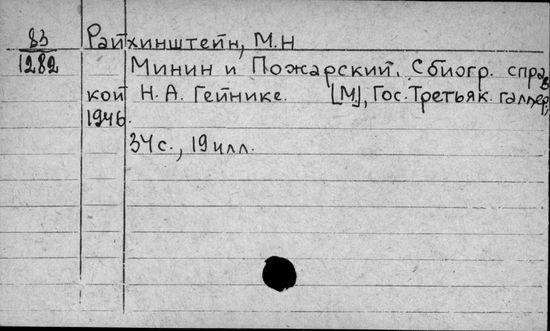 83 Райхинштейн, М.Н
1282 Минин и Пожарский. С биогр. справ
кой Н. А. Гейнике. [М], Гос. Третьяк. галлер,
1946.
34 с., 19 илл.